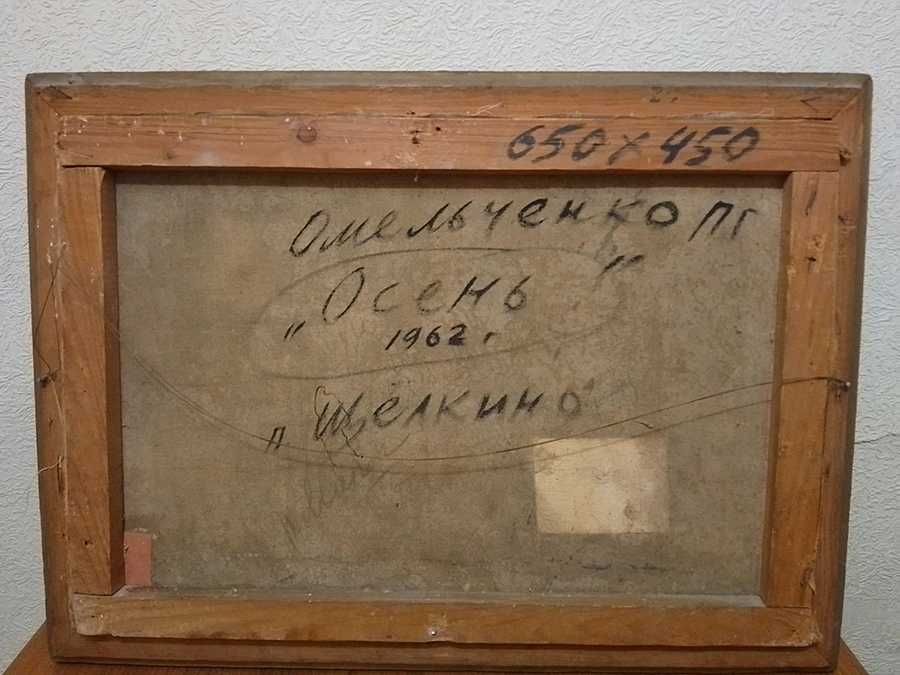 650 х 450
Омельченко ПГ
„Осень"
1962 г
„Щёлкино"